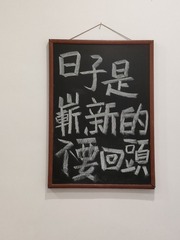 日子是
嶄新的
不要回頭